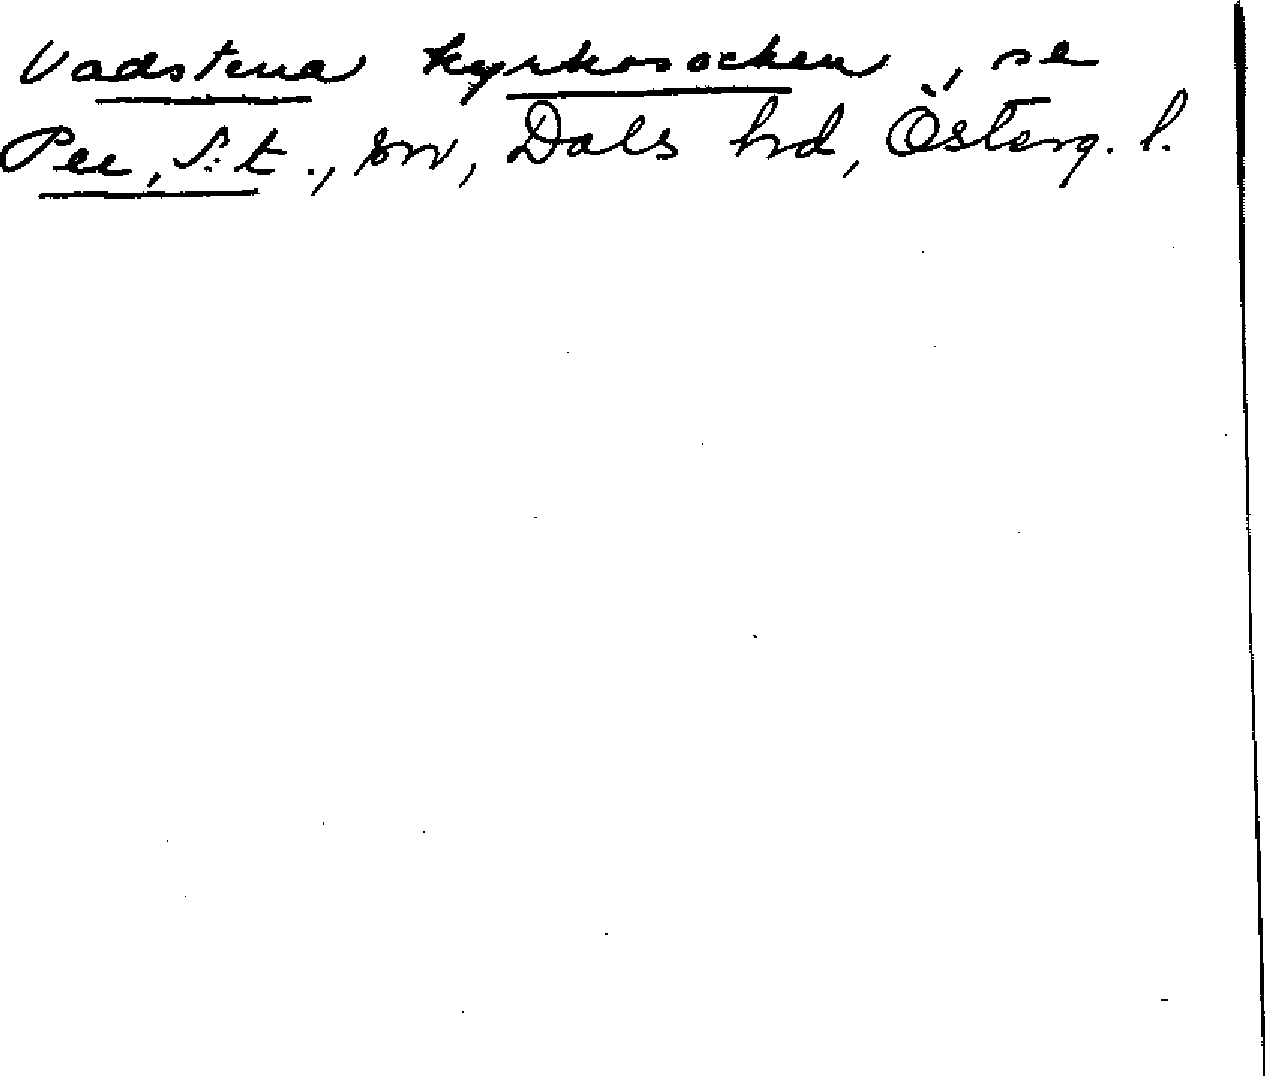 Vadstena kyrkosocken, se
Per, S:t., sn, Dals hd, Österg. l.